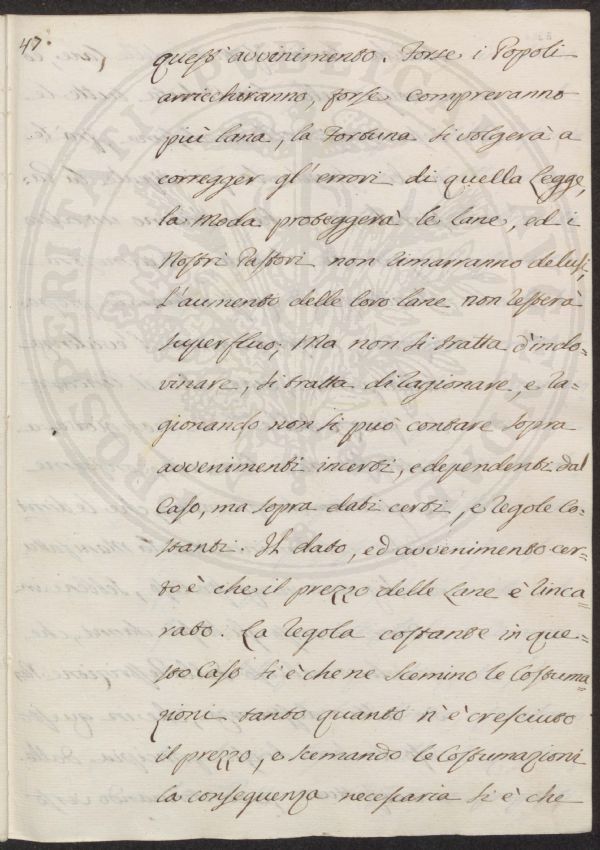 47.
quest' avvenimento. Forse i Popoli
arricchiranno, forse compreranno
più lana, la Fortuna si volgerà a
corregger gl' errori di quella Legge,
la Moda proteggerà le Lane, ed i
Nostri Pastori non rimarranno delusi,
L'aumento delle loro lane non resterà
superfluo; Ma non si tratta d'indo=
vinare, si tratta di ragionare, e ra=
gionando non si può contare sopra
avvenimenti incerti, e dependenti dal
Caso, ma sopra dati certi, e regole Co=
stanti. Il dato, ed avvenimento cer=
to è che il prezzo delle Lane è rinca=
rato. La regola costante in que=
sto Caso si è che ne scemino le Costuma=
zioni tanto quanto n'è cresciuto
il prezzo, e scemando le Costumazioni
la conseguenza necessaria si è che
PROSPERITATI PUBLICAE AUGENDAE